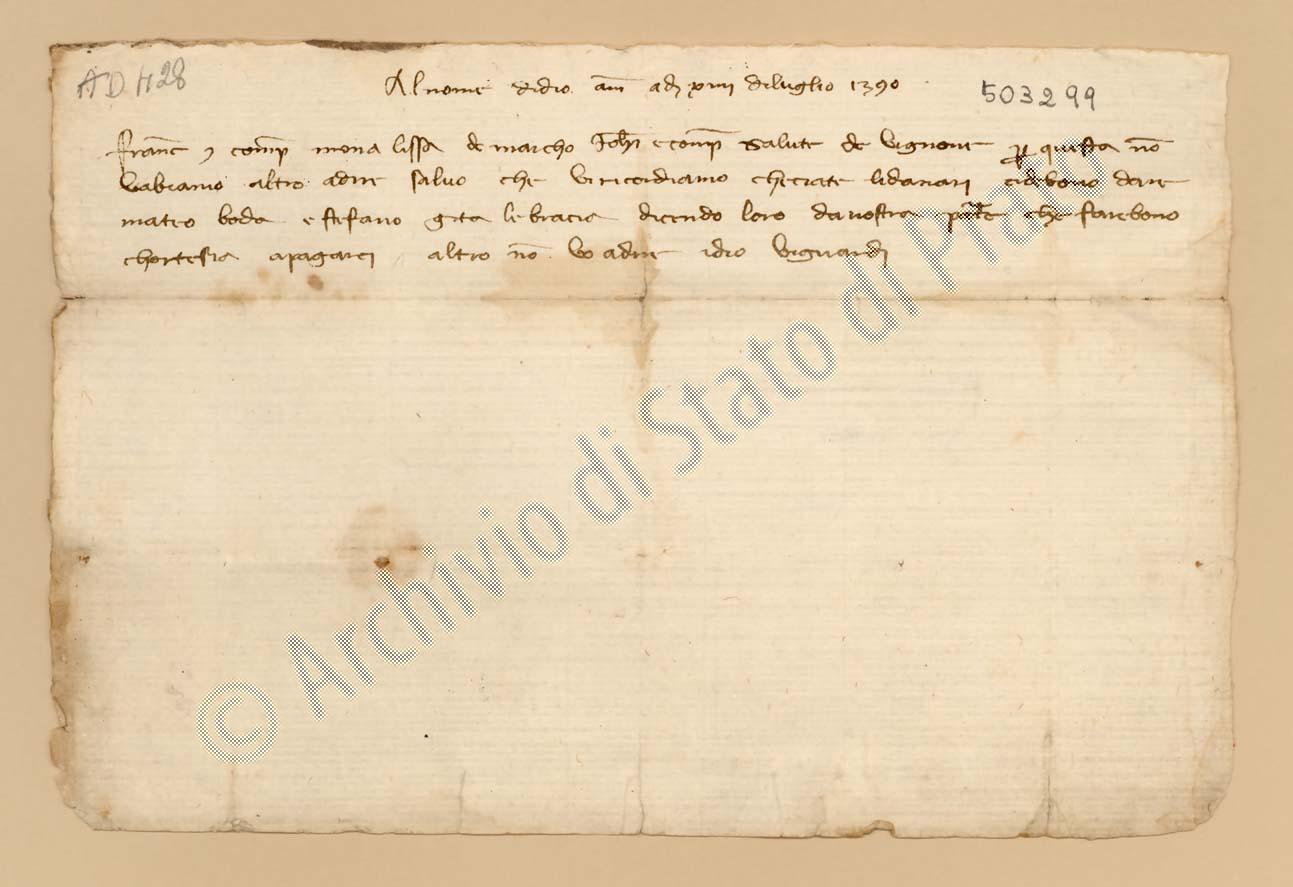 AD 1128
Al nome didio am̃ adj xiiij diluglio 1390
503299
franc̃ e comp̃ mona lissa de marcho Joh̃i e comp̃ salute de vignone p questa nõ
vabiamo altro adire salvo che viricordiamo checiate lidanari cidebono dare
mateo boda e stefano gita lebracia dicendo loro da nostra parte che farebono
chortesia apagarci altro nõ vo adire idio viguardj
© Archivio di Stato di Prato